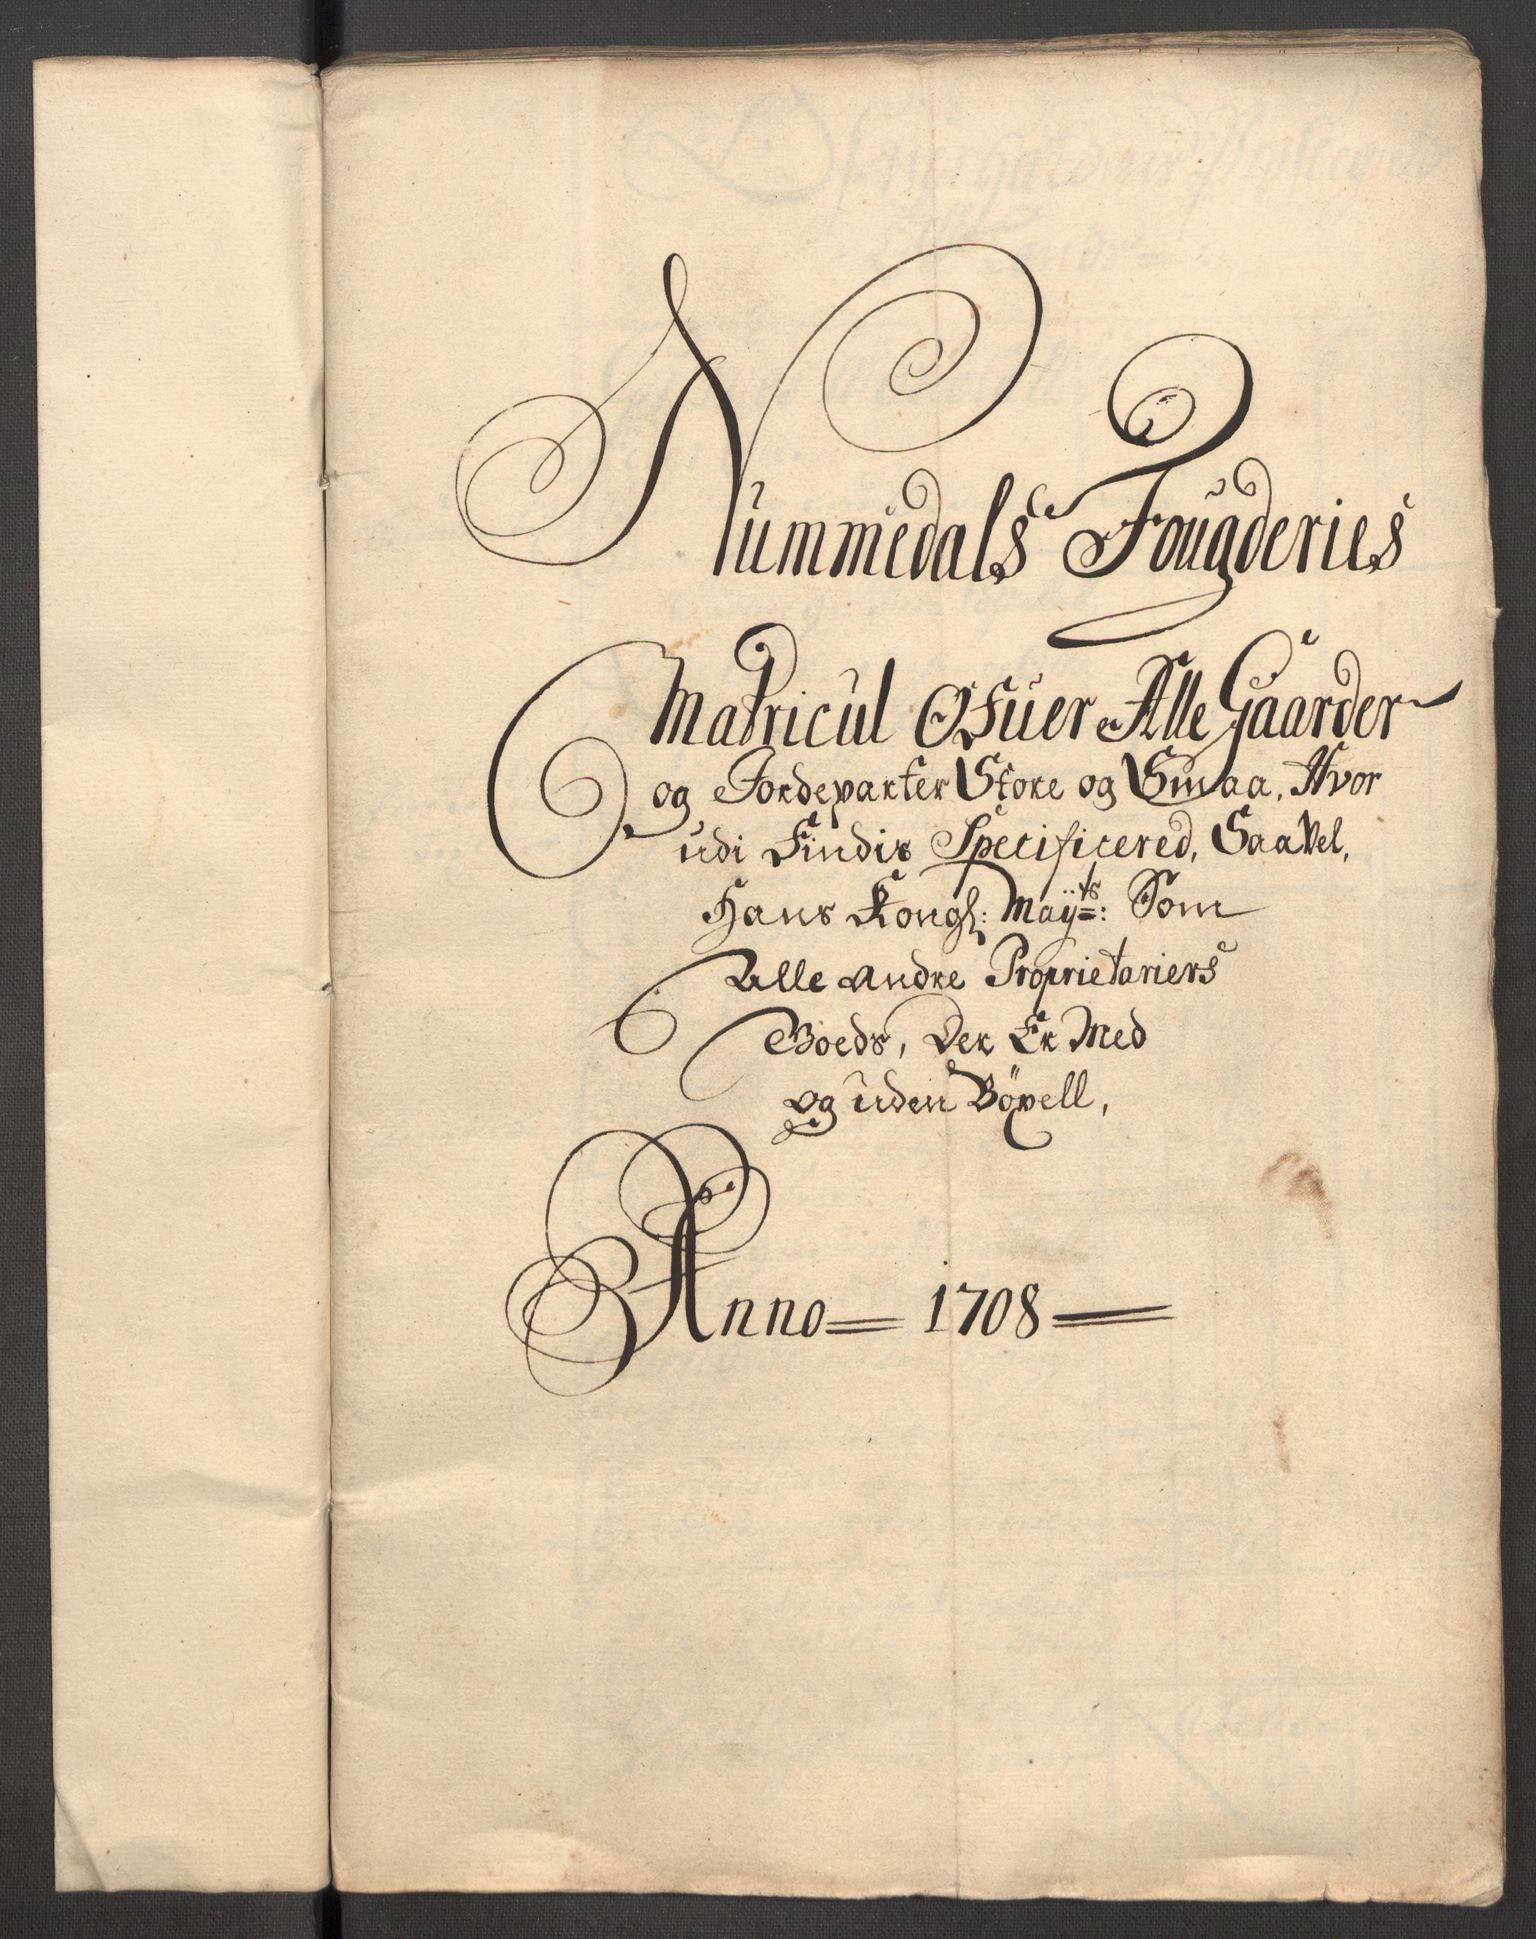 Nummedals Fougderies
Matricul Ofuer Alle Gaarder
og Jordeparter Store og Smaa, Hvor
udi Findis Specificered, Saavel,
Hans Kongl: Mayts: Som
Alle andre Proprietariers
Goeds, Der Er Med
og uden Böxell,
Anno 1708